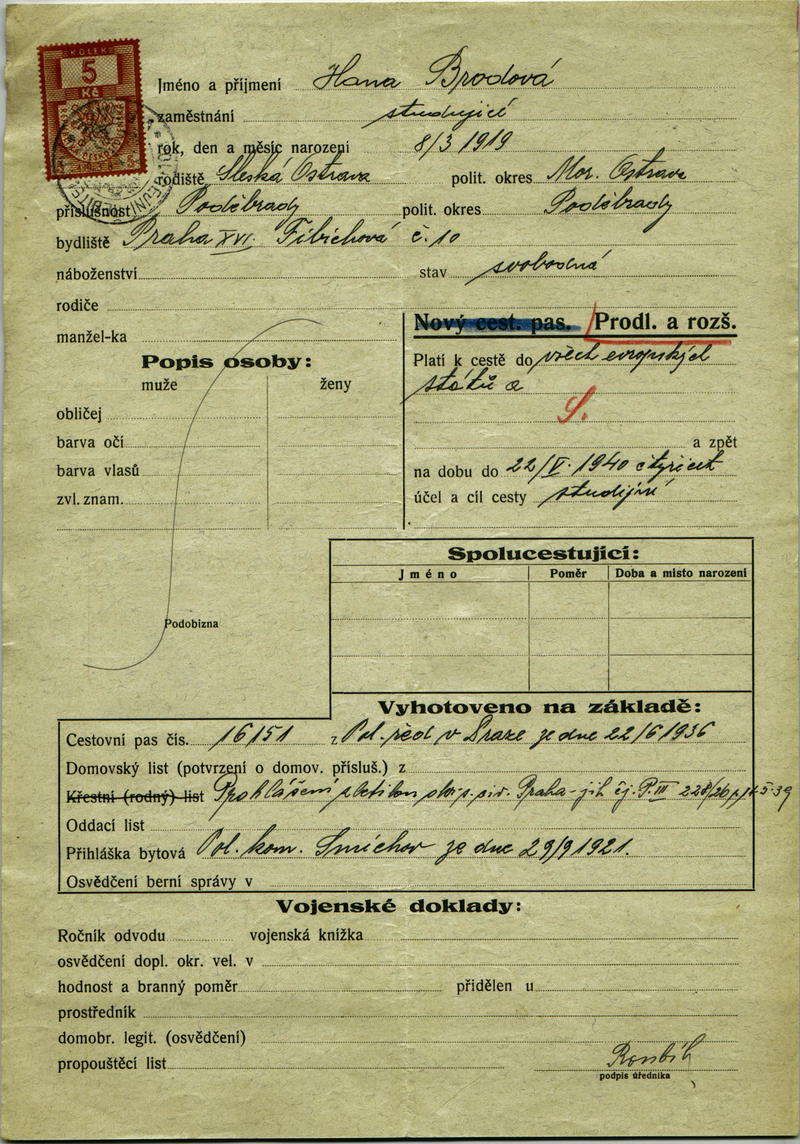 KOLEK
5
Kč
Jméno a příjmení Hana Brodová
zaměstnání studující
rok, den a měsíc narození 8/3 1919
rodiště Slezská Ostrava polit. okres Mor. Ostrava
příslušnost Poděbrady polit. okres Poděbrady
bydliště Praha XVI. Fibichová č. 10
náboženství stav svobodná
rodiče
manžel-ka
Nový cest. pas. Prodl. a rozš.
Popis osoby:
muže ženy
obličej
barva očí
barva vlasů
zvl. znam.
Platí k cestě do všech evropských
států a
S.
a zpět
na dobu do 22/V. 1940 čtyřicet
účel a cíl cesty studijní
Podobizna
Spolucestující:
Jméno Poměr Doba a místo narození
Vyhotoveno na základě:
Cestovní pas čís. 16151 z Pol. řed v Praze ze dne 22/6 1936
Domovský list (potvrzení o domov. přísluš.) z
Křestní (rodný) list Prohlášení Praha - jih čj. P. III 228/26
Oddací list
Přihláška bytová Pol. kom. Smíchov ze dne 29/9 1921.
Osvědčení berní správy v
Vojenské doklady:
Ročník odvodu vojenská knížka
osvědčení dopl. okr. vel. v
hodnost a branný poměr přidělen u
prostředník
domobr. legit. (osvědčení)
propouštěcí list
podpis úředníka